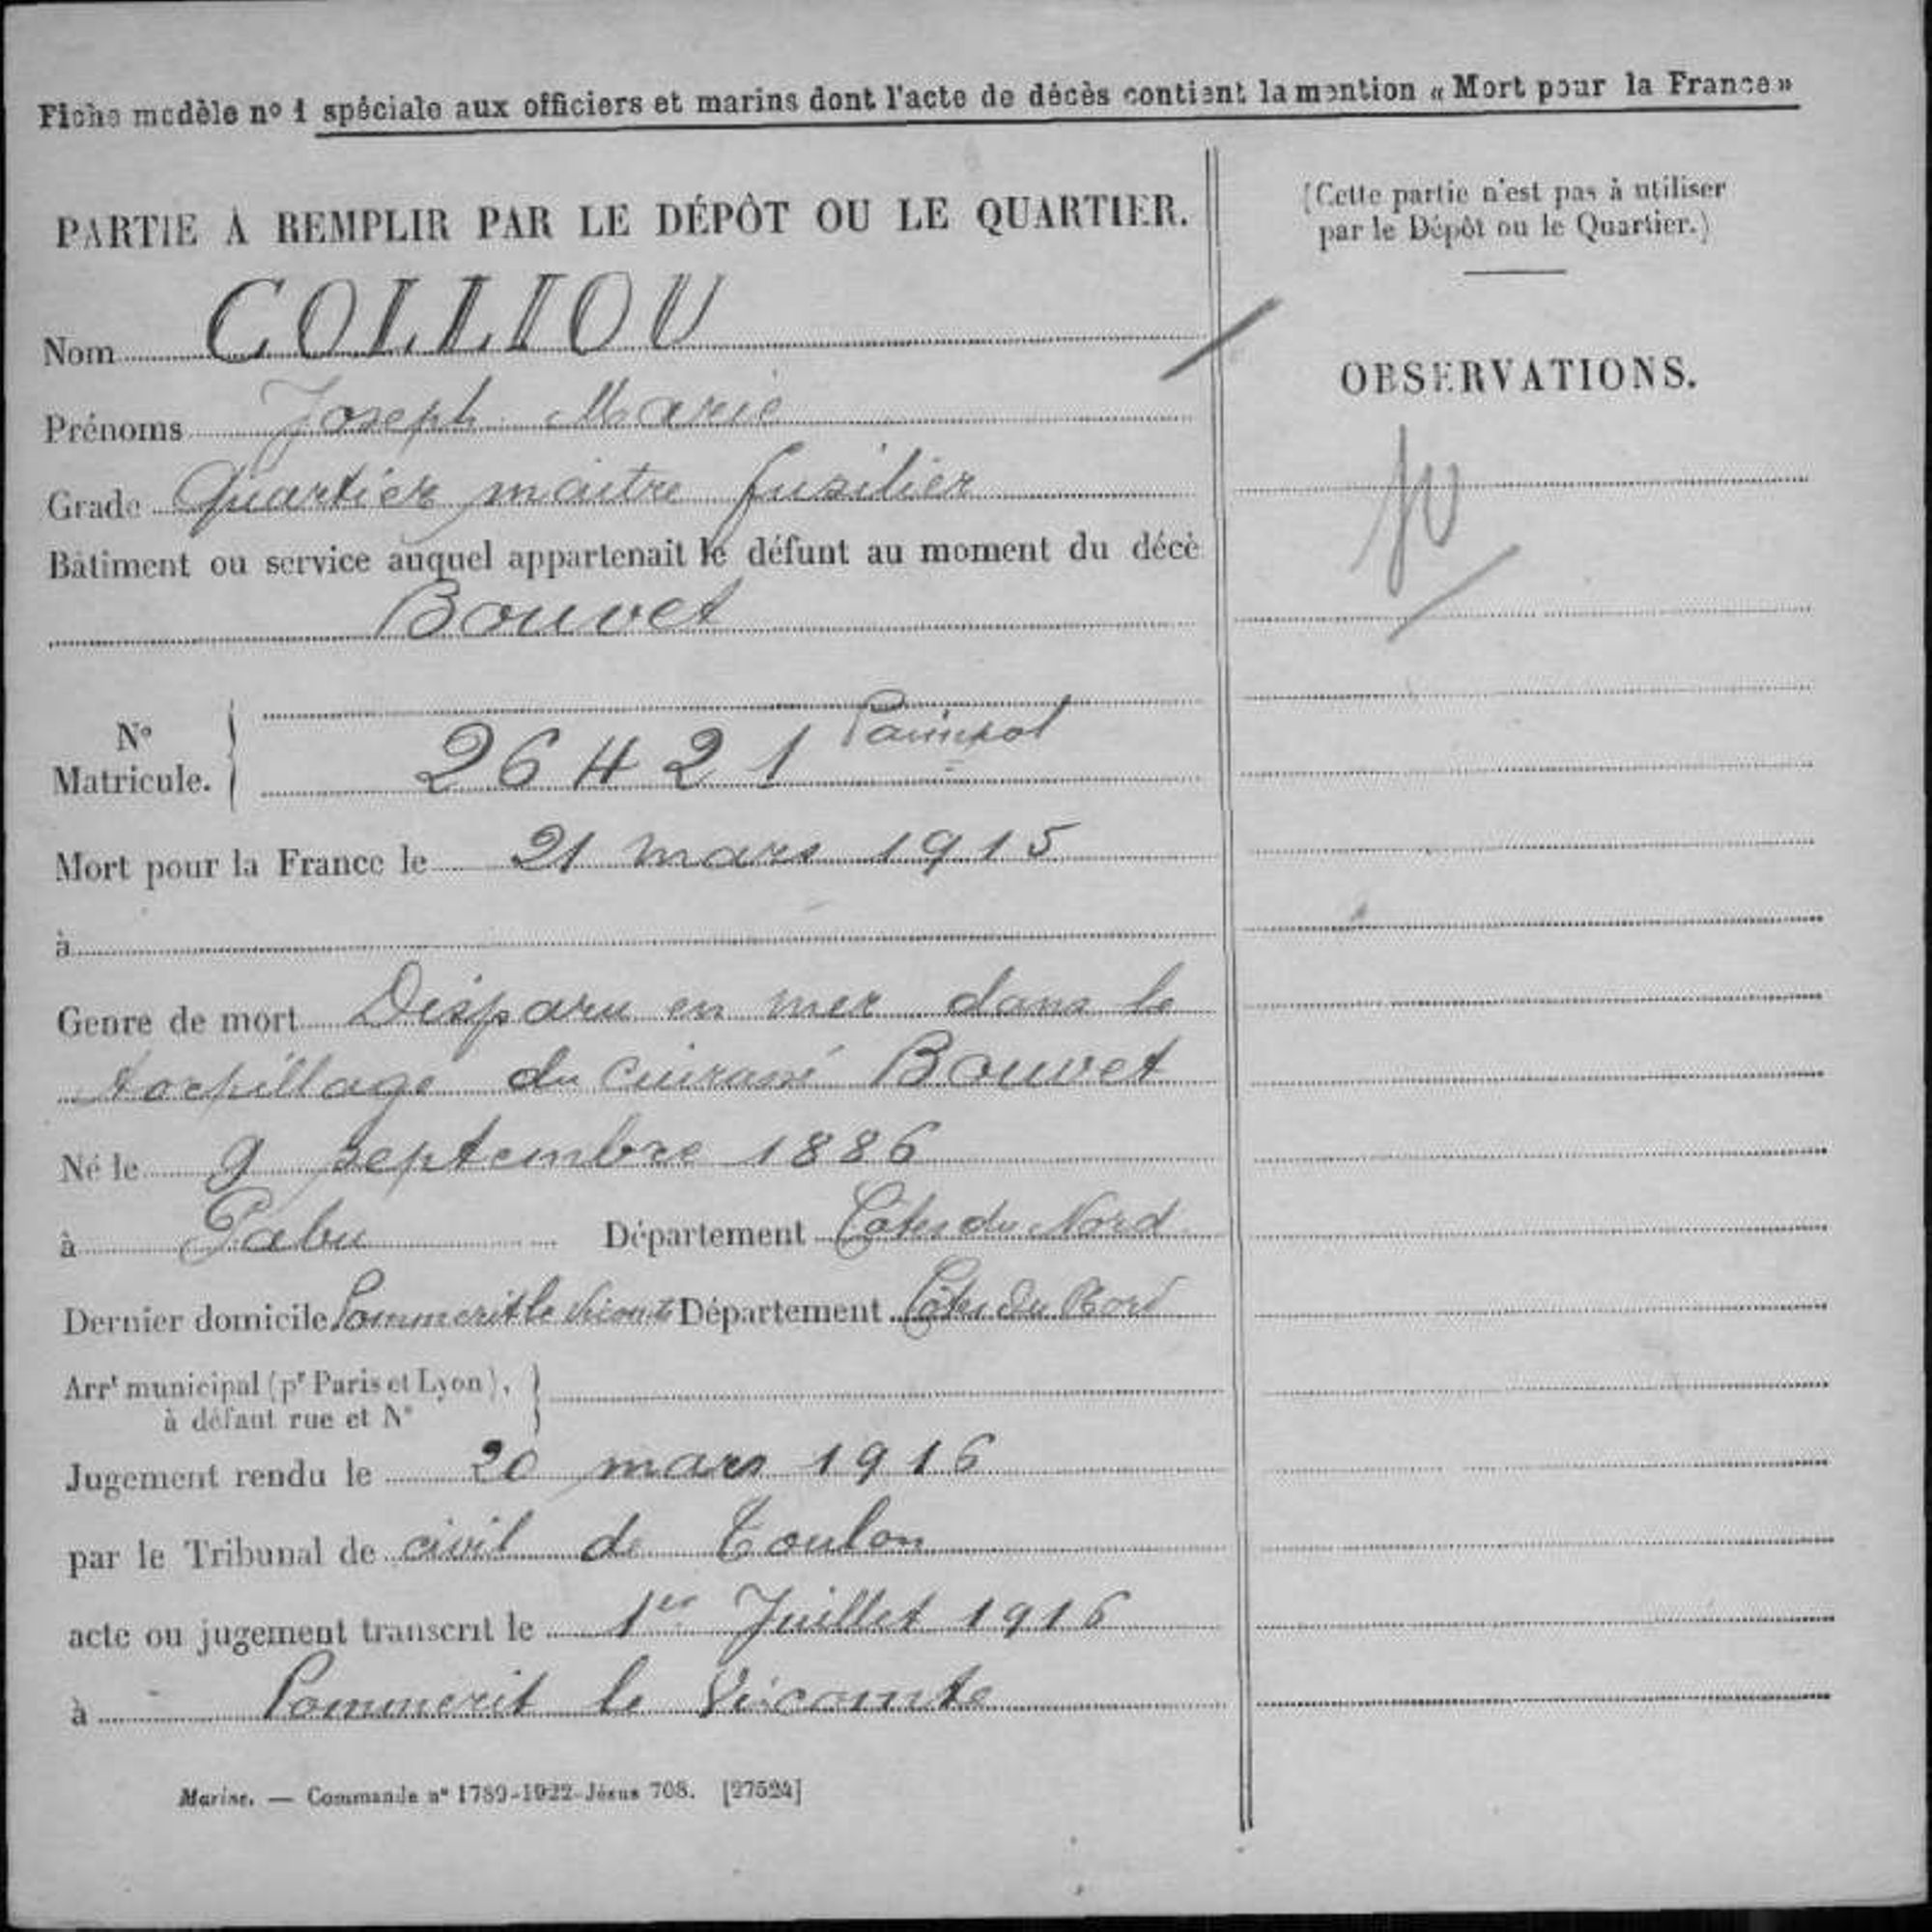 Fiche modèle n° 1 spéciale aux officiers et marins dont l'acte de décès contient la mention « Mort pour la France »
PARTIE À REMPLIR PAR LE DÉPÔT OU LE QUARTIER.
Nom COLLIOU
Prénoms Joseph Marie
Grade Quartier maître fusilier
Bâtiment ou service auquel appartenait le défunt au moment du décè
Bouvet
N°
Matricule. 26421 Paimpol
Mort pour la France le 21 mars 1915
à
Genre de mort Disparu en mer dans le
torpillage du cuirassé Bouvet
Né le 9 septembre 1886
à Pabu Département Côtes du Nord
Dernier domicile Pommerit le Vicomte Département Côtes du Nord
Arrt municipal (pr Paris et Lyon),
à défaut rue et N°
Jugement rendu le 20 mars 1916
par le Tribunal de civil de Toulon
acte ou jugement transcrit le 1er Juillet 1916
à Pommerit le Vicomte
Marine. — Commande n° 1789-1922-Jésus 708. [27524]
(Cette partie n'est pas à utiliser
par le Dépôt ou le Quartier.)
OBSERVATIONS.